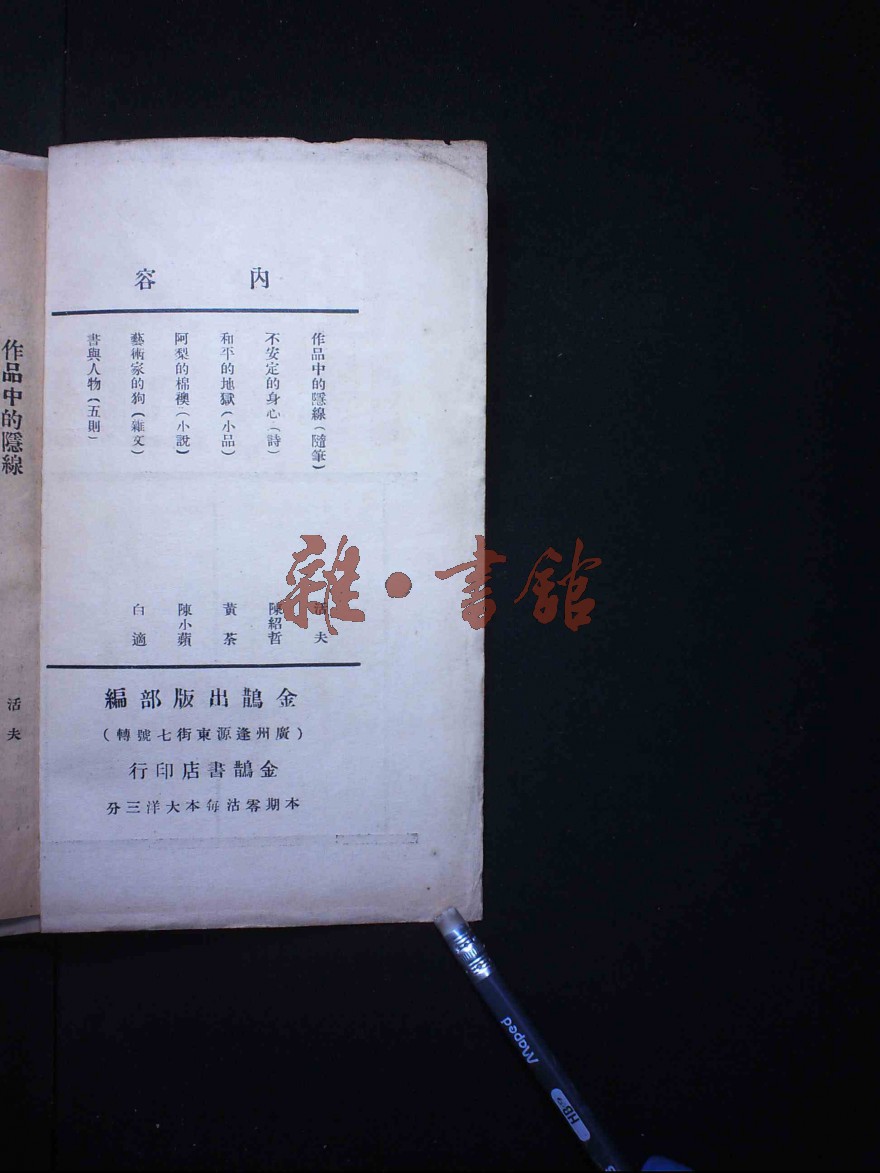 內容
作品中的隱線（隨筆）
活夫
不安定的身心（詩）
陳紹哲
和平的地獄（小品）
黃荼
阿梨的棉襖（小說）
陳小蘋
藝術家的狗（雜文）
白適
書與人物（五則）
金鵲出版部編
（廣州逢源東街七號轉）
金鵲書店印行
本期零沽每本大洋三分
作品中的隱線
活夫
雜・書館
Maped
HB